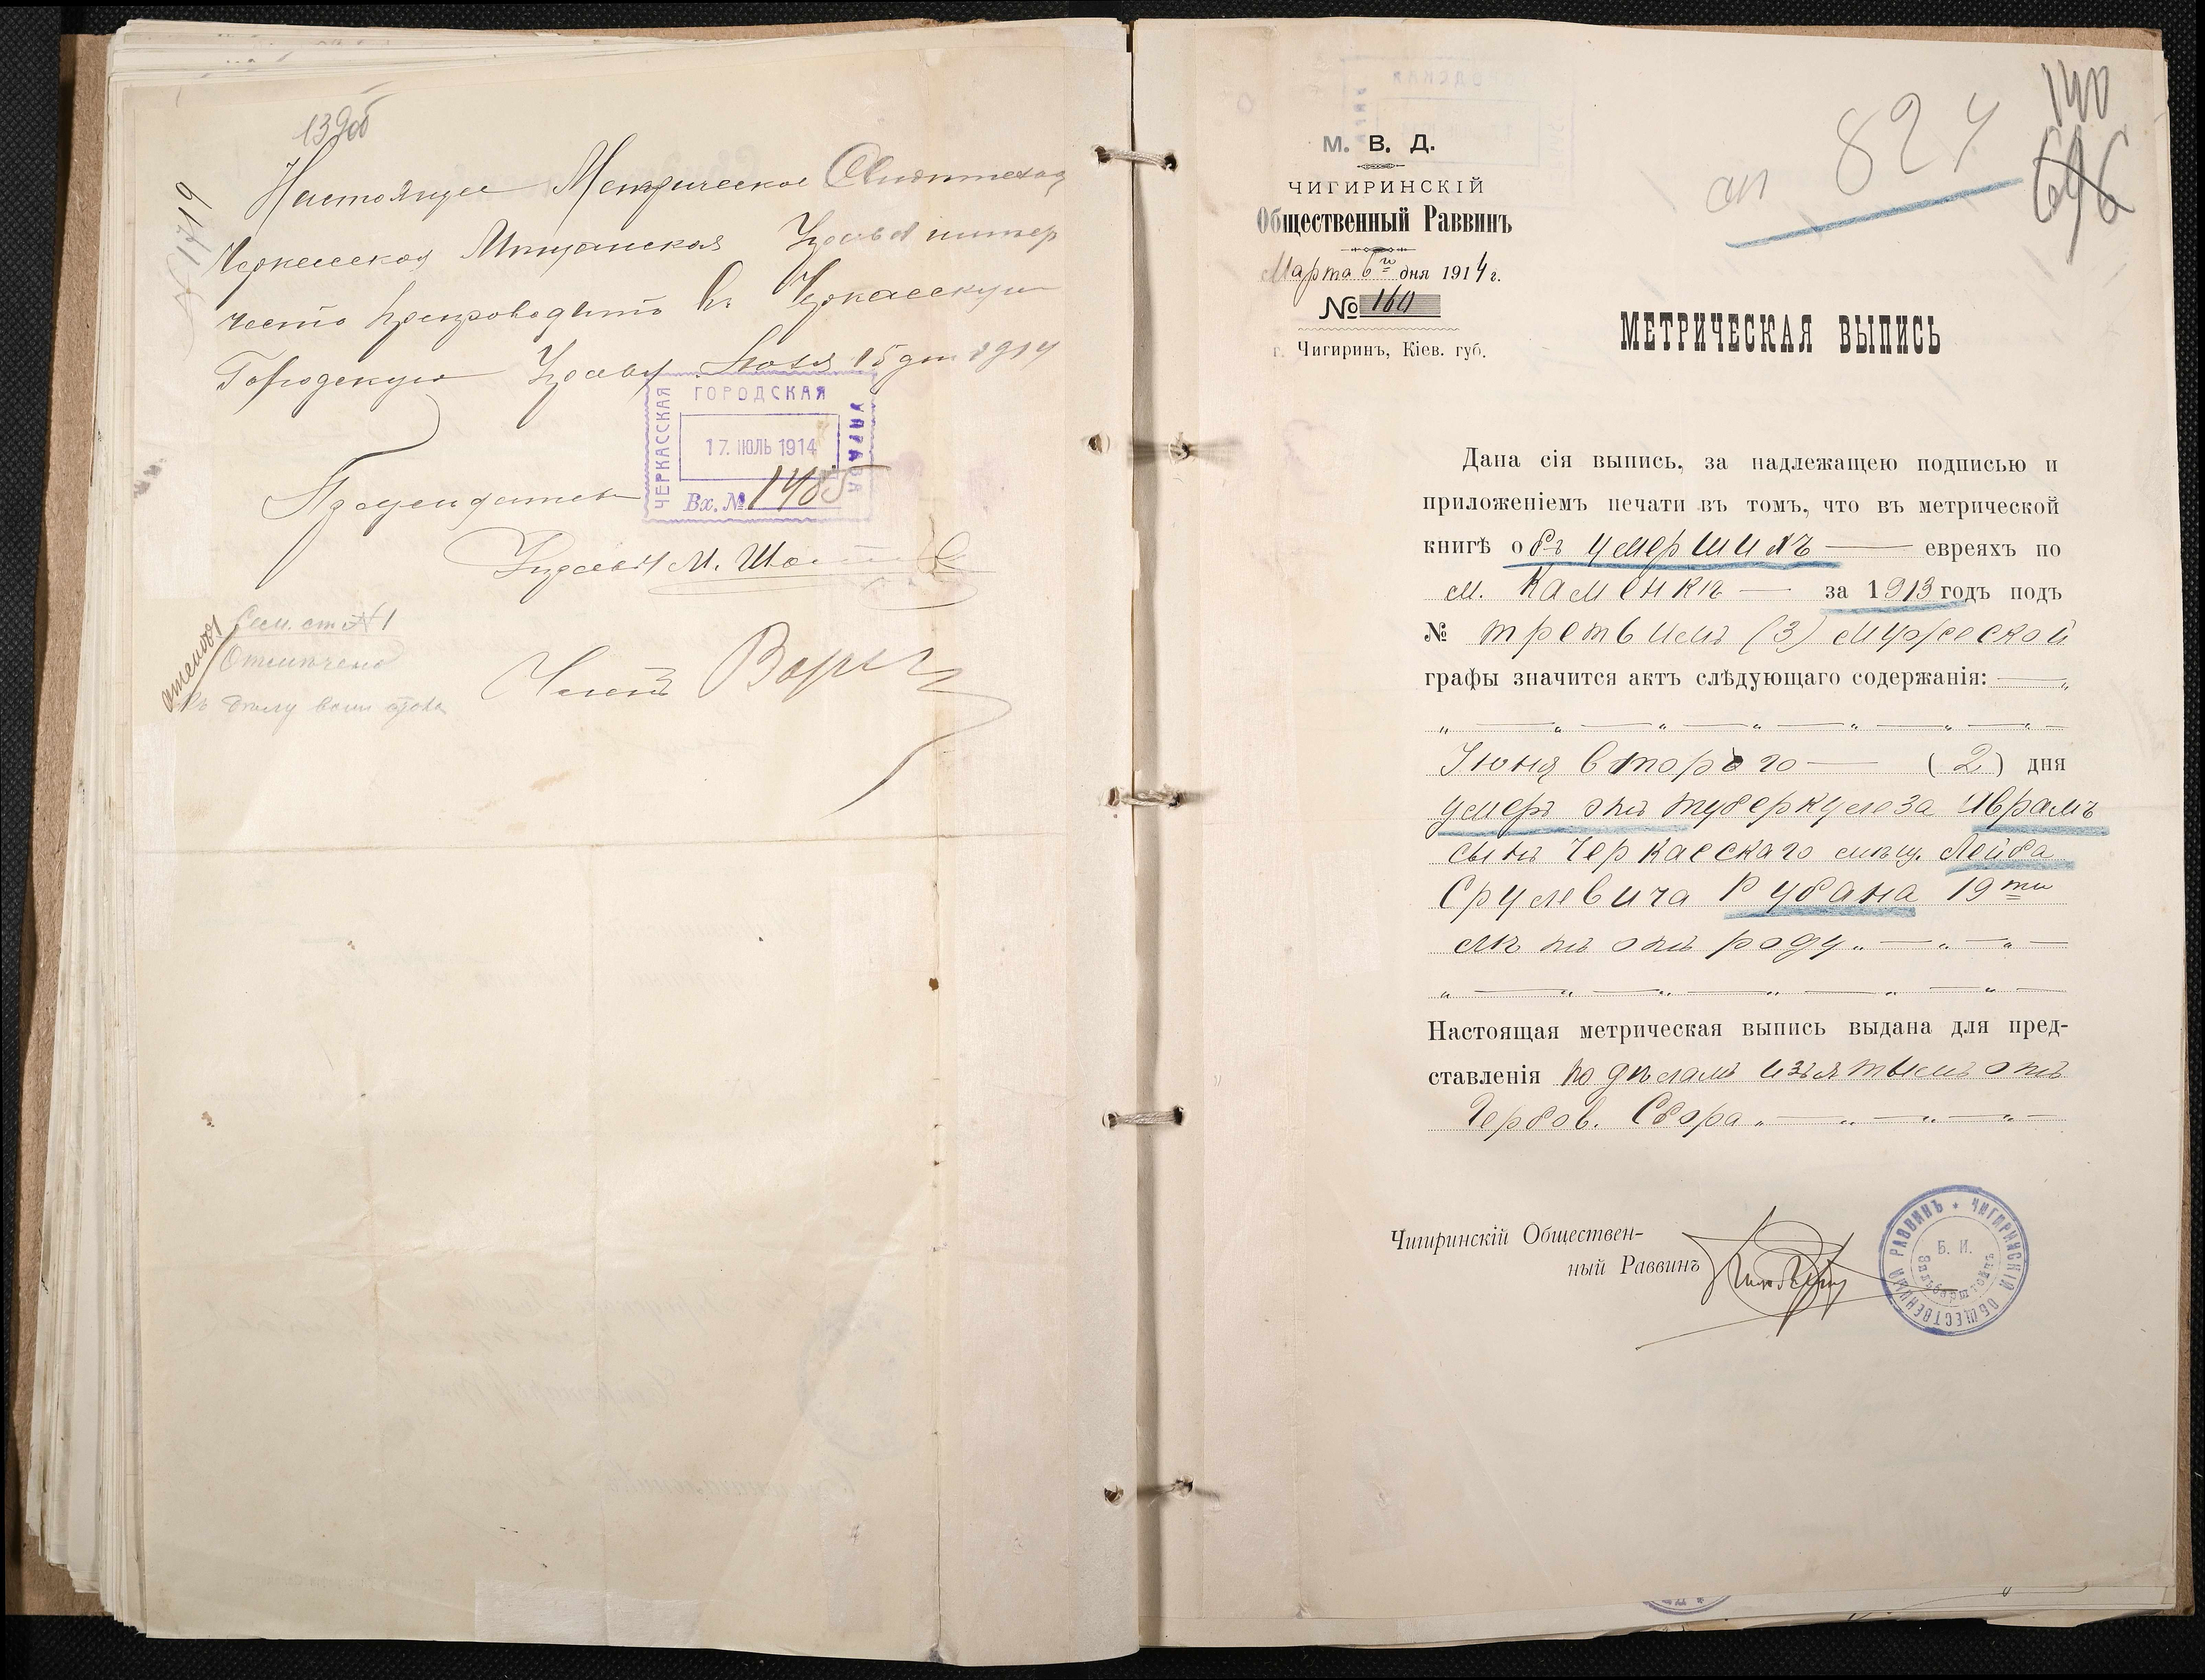 139об
№ 1719
Настоящее Метрическое
Черкасская Мещанская Управа имеет
честь препроводить въ Черкасскую
Городскую Управу. Июля 15 дня 1914
ЧЕРКАССКАЯ ГОРОДСКАЯ УПРАВА
17. ІЮЛЬ 1914
Вх. № 1485
Управы М.
Сем. сп. № 1
Отмѣчено
Къ дѣлу
Членъ
140
696
сп 824
М. В. Д.
ЧИГИРИНСКІЙ
Общественный Раввинъ
Марта 6го дня 1914 г.
№ 160
г. Чигиринъ, Кіев. губ.
МЕТРИЧЕСКАЯ ВЫПИСЬ
Дана сія выпись, за надлежащею подписью и
приложеніемъ печати въ томъ, что въ метрической
книгѣ объ умершихъ — евреяхъ по
м. Каменкѣ — за 1913 годъ подъ
№ третьимъ (3) мужеской
графы значится актъ слѣдующаго содержанія: —
Іюня второго — (2) дня
умеръ отъ туберкулеза Аврамъ
сынъ Черкасскаго мѣщ. Лейба
Срулевича Рубана 19ти
лѣтъ отъ роду
Настоящая метрическая выпись выдана для пред-
ставленія по дѣламъ изъятымъ отъ
Гербов. Сбора
Чигиринскій Обществен-
ный Раввинъ
ЧИГИРИНСКІЙ ОБЩЕСТВЕННЫЙ РАВВИНЪ
Б. И.